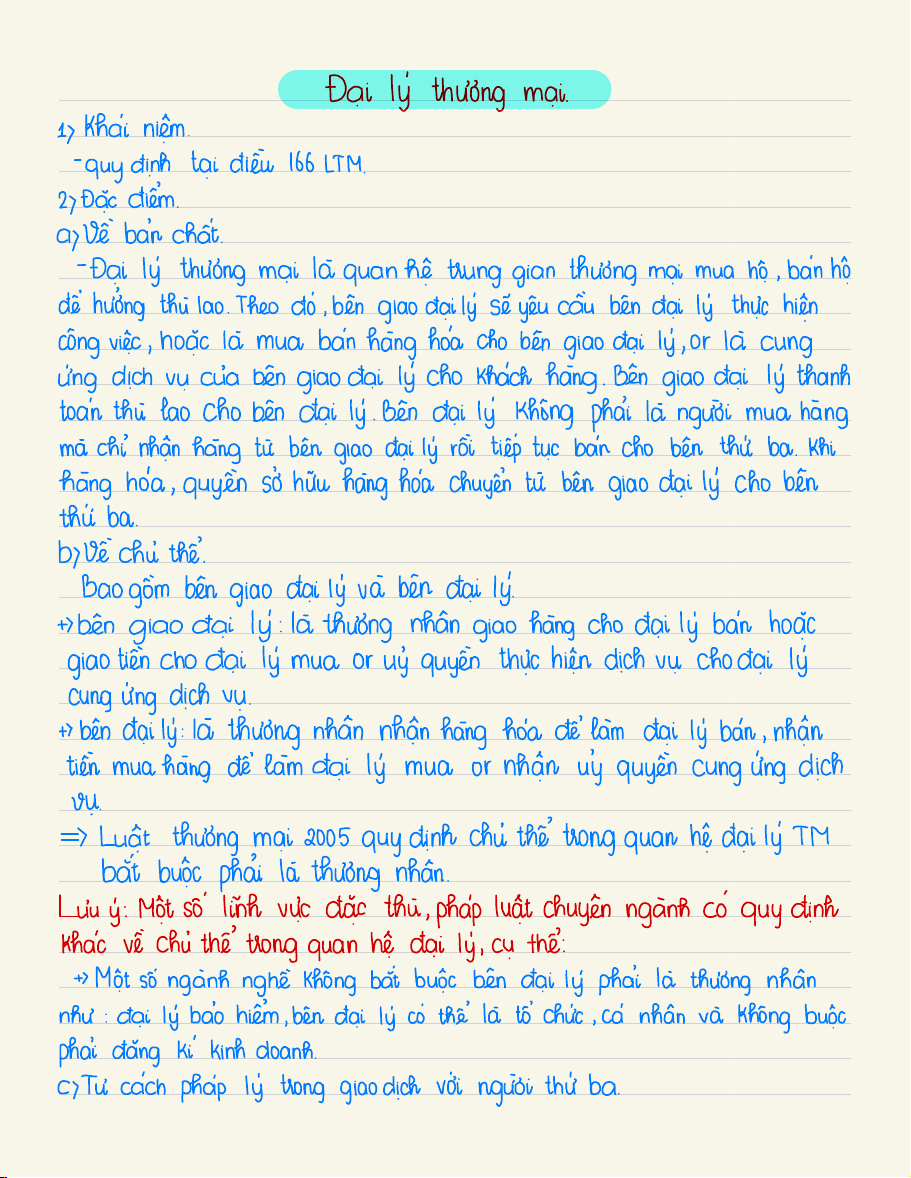 Đại lý thương mại.
1) Khái niệm.
- quy định tại điều 166 LTM.
2) Đặc điểm.
a) Về bản chất.
- Đại lý thương mại là quan hệ trung gian thương mại mua hộ, bán hộ
để hưởng thù lao. Theo đó, bên giao đại lý sẽ yêu cầu bên đại lý thực hiện
công việc, hoặc là mua bán hàng hóa cho bên giao đại lý, or là cung
ứng dịch vụ của bên giao đại lý cho khách hàng. Bên giao đại lý thanh
toán thù lao cho bên đại lý. Bên đại lý không phải là người mua hàng
mà chỉ nhận hàng từ bên giao đại lý rồi tiếp tục bán cho bên thứ ba. Khi
hàng hóa, quyền sở hữu hàng hóa chuyển từ bên giao đại lý cho bên
thứ ba.
b) Về chủ thể.
Bao gồm bên giao đại lý và bên đại lý.
+) bên giao đại lý: là thương nhân giao hàng cho đại lý bán hoặc
giao tiền cho đại lý mua or uỷ quyền thực hiện dịch vụ cho đại lý
cung ứng dịch vụ.
+) bên đại lý: là thương nhân nhận hàng hóa để làm đại lý bán, nhận
tiền mua hàng để làm đại lý mua or nhận uỷ quyền cung ứng dịch
vụ.
=> Luật thương mại 2005 quy định chủ thể trong quan hệ đại lý TM
bắt buộc phải là thương nhân.
Lưu ý: Một số lĩnh vực đặc thù, pháp luật chuyên ngành có quy định
khác về chủ thể trong quan hệ đại lý, cụ thể:
+) Một số ngành nghề không bắt buộc bên đại lý phải là thương nhân
như: đại lý bảo hiểm, bên đại lý có thể là tổ chức, cá nhân và không buộc
phải đăng kí kinh doanh.
c) Tư cách pháp lý trong giao dịch với người thứ ba.